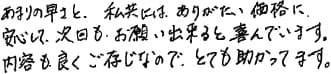 あまりの早さと、私共には、ありがたい価格に、
安心して、次回も、お願い出来ると喜んでいます。
内容も良くご存じなので、とても助かってます。